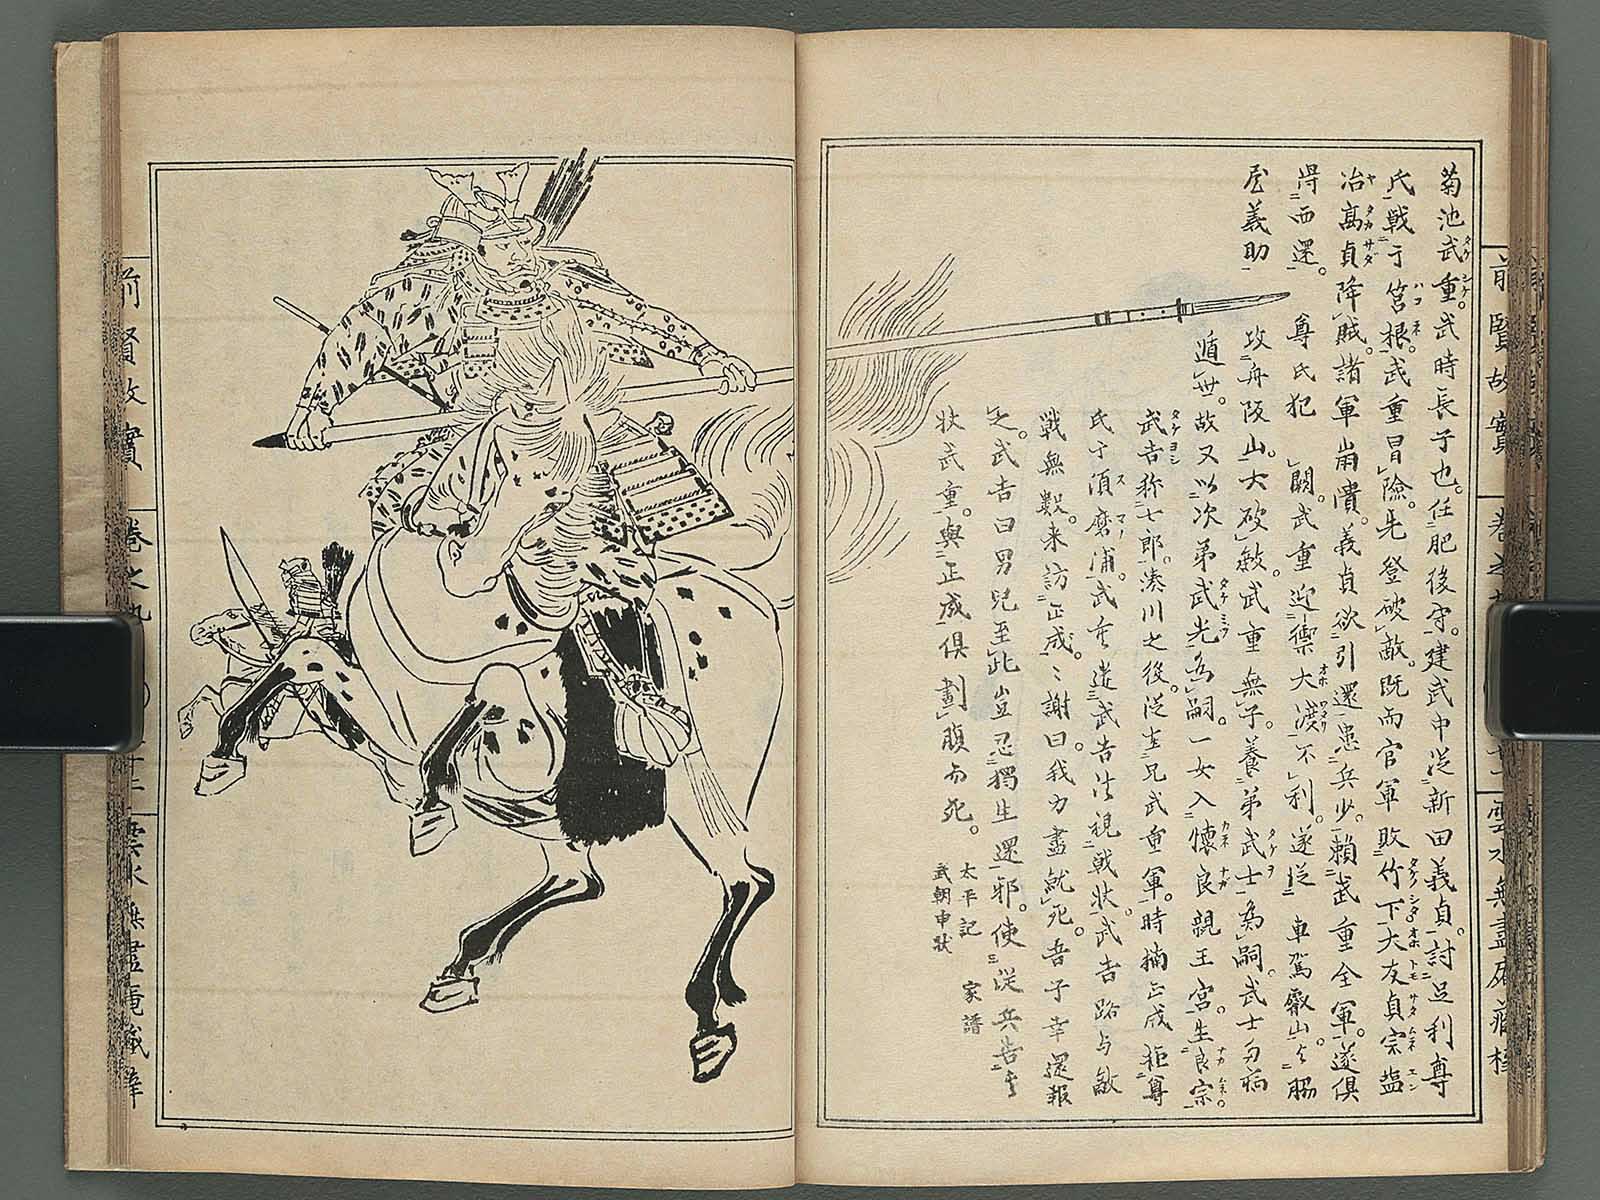 菊池武重。武時長子也。任肥後守。建武中従新田義貞。討足利尊
氏戦于筥根。武重冒險。先登破敵。既而官軍敗竹下大友貞宗塩
冶高貞降賊。諸軍崩潰。義貞欲引還患兵少。賴武重全軍。遂倶
得而還。尊氏犯闕。武重迎禦大渡不利。遂従車駕叡山。与脇
屋義助攻舟阪山。大破敵。武重無子。養弟武士為嗣。武士
遁世。故又以次弟武光為嗣。一女入懐良親王宮。生良宗。
武吉称七郎。湊川之役。従在兄武重軍。時楠正成拒尊
氏于須磨浦。武重遣武吉往視戦状。武吉路与敵
戦無數。来訪正成。ミ謝曰。我力盡就死。吾子幸還報
之。武吉曰男兒至此豈忍獨生還邪。使従兵告
状武重。與正成倶劃腹而死。
太平記 家譜
武朝申状
前賢故實
巻之九
雲水無盡庵藏